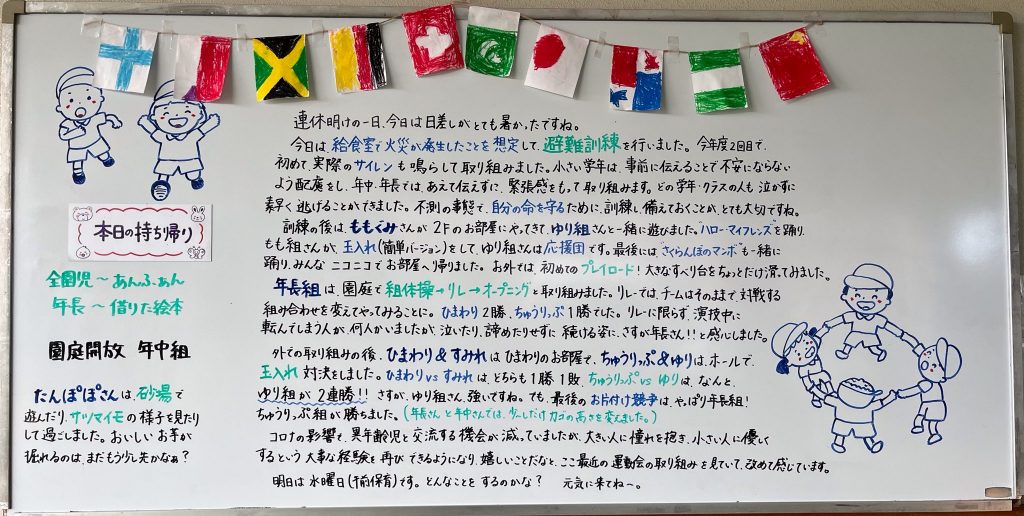 本日の持ち帰り
全園児〜あんふぁん
年長〜借りた絵本
園庭開放 年中組
たんぽぽさんは、砂場で
遊んだり、サツマイモの様子を見たり
して過ごしました。おいしいお芋が
掘れるのは、まだもう少し先かなぁ?
連休明けの一日、今日は日差しがとても暑かったですね。
今日は、給食室で火災が発生したことを想定して、避難訓練を行いました。今年度2回目で、
初めて、実際のサイレンも鳴らして取り組みました。小さい学年は、事前に伝えることで不安にならない
よう配慮をし、年中・年長では、あえて伝えずに、緊張感をもって取り組みます。どの学年・クラスの人も泣かずに
素早く逃げることができました。不測の事態で、自分の命を守るために、訓練し、備えておくことが、とても大切ですね。
訓練の後は、ももぐみさんが2Fのお部屋にやってきて、ゆり組さんと一緒に遊びました。"ハロー・マイフレンズ"を踊り、
もも組さんが、玉入れ(簡単バージョン)をして、ゆり組さんは応援団です。最後には"さくらんぼのマンボ"も一緒に
踊り、みんなニコニコでお部屋へ帰りました。お外では、初めてのプレイロード!大きなすべり台をちょっとだけ滑てみました。
年長組は、園庭で組体操→リレー→オープニングと取り組みました。リレーでは、チームはそのままで、対戦する
組み合わせを変えてやってみることに。ひまわり2勝、ちゅうりっぷ1勝でした。リレーに限らず、演技中に
転んでしまう人が、何人かいましたが、泣いたり、諦めたりせずに続ける姿に、さすが年長さん!!と感じました。
外での取り組みの後、ひまわり&すみれはひまわりのお部屋で、ちゅうりっぷ&ゆりは、ホールで、
玉入れ対決をしました。ひまわりvsすみれは、どちらも1勝1敗、ちゅうりっぷvsゆりは、なんと、
ゆり組が2連勝!!さすが、ゆり組さん、強いですね。でも、最後のお片付け競争は、やっぱり年長組!
ちゅうりっぷ組が勝ちました。(年長さんと年中さんでは、少しだけカゴの高さを変えました。)
コロナの影響で、異年齢児と交流する機会が減っていましたが、大きい人に憧れを抱き、小さい人に優しく
するという大事な経験を再びできるようになり、嬉しいことだなと、ここ最近の運動会の取り組みを見ていて、改めて感じています。
明日は水曜日(午前保育)です。どんなことをするのかな? 元気に来てね〜。